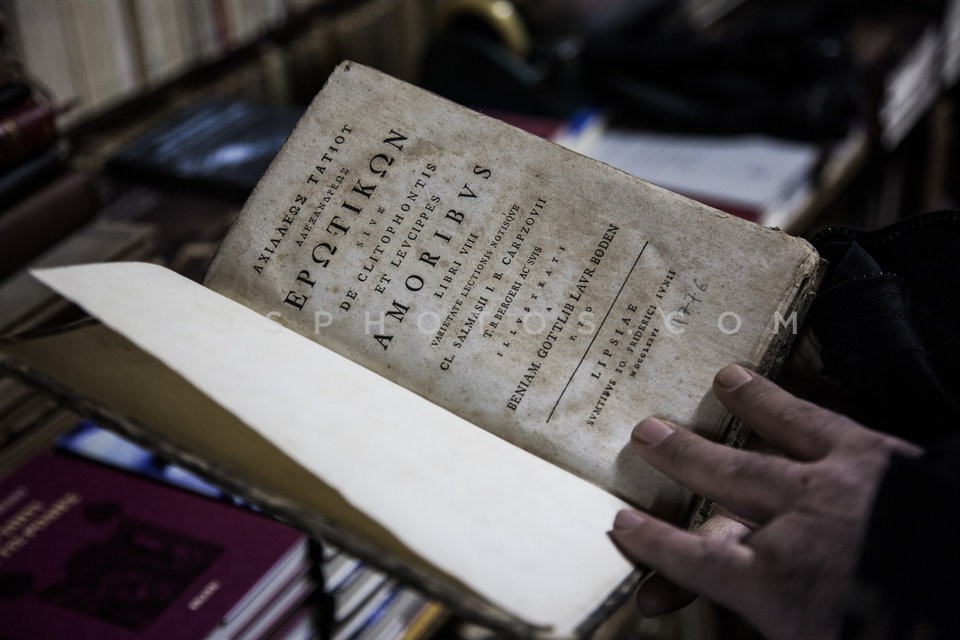 ΑΧΙΛΛΕΩΣ ΤΑΤΙΟΥ
ΑΛΕΞΑΝΔΡΕΩΣ
ΕΡΩΤΙΚΩΝ
SIVE
DE CLITOPHONTIS
ET LEVCIPPES
AMORIBVS
LIBRI VIII
VARIETATE LECTIONIS NOTISQVE
CL. SALMASII I. B. CARPZOVII
T. B. BERGERI AC SVIS
ILLVSTRATI
A
BENIAM GOTTLIB LAVR. BODEN
LIPSIAE
SVMTIBVS IO. FRIDERICI IVNII
MDCCLXXVI
1776
PHOTOS.COM